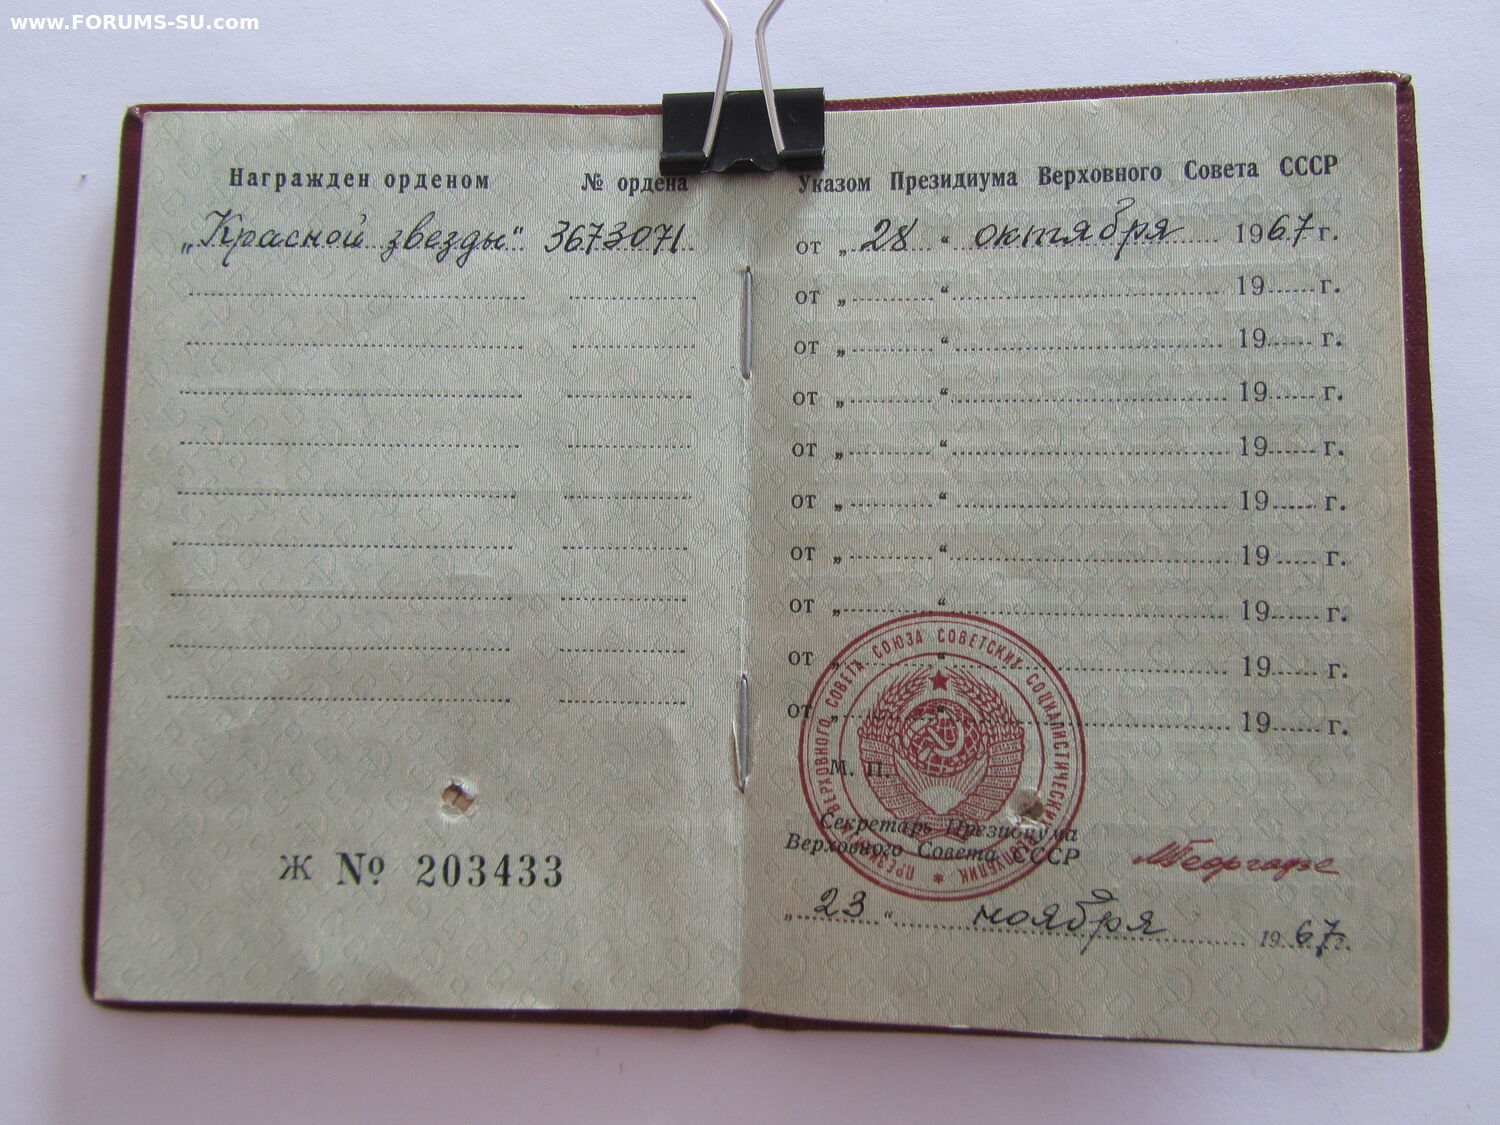 www.FORUMS-SU.com
Награжден орденом № ордена
„Красной звезды“ 3673071
Ж № 203433
Указом Президиума Верховного Совета СССР
от „28“ октября 1967 г.
от „ “ 19 г.
от „ “ 19 г.
от „ “ 19 г.
от „ “ 19 г.
от „ “ 19 г.
от „ “ 19 г.
от „ “ 19 г.
от „ “ 19 г.
от „ “ 19 г.
М. П.
ПРЕЗИДИУМ ВЕРХОВНОГО СОВЕТА СОЮЗА СОВЕТСКИХ СОЦИАЛИСТИЧЕСКИХ РЕСПУБЛИК
Секретарь Президиума
Верховного Совета СССР
„23“ ноября 1967 г.